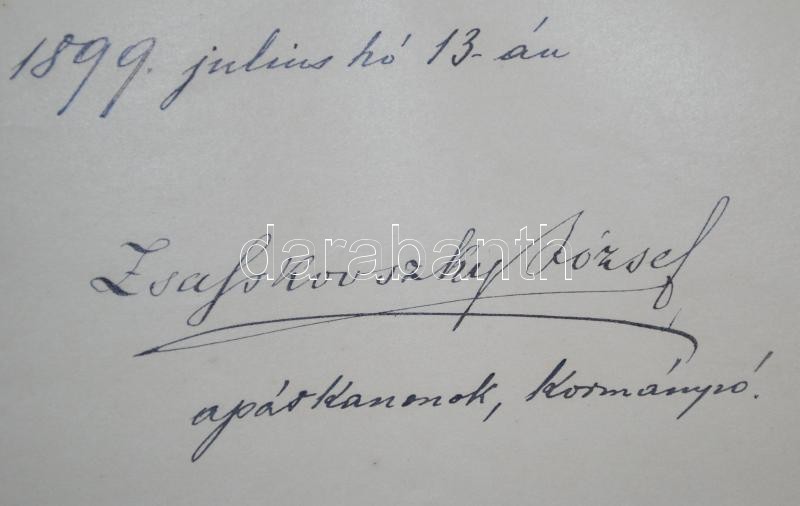 1899. julius hó 13-án
darabanth
Zsasskovszky József
apátkanonok, kormányzó.